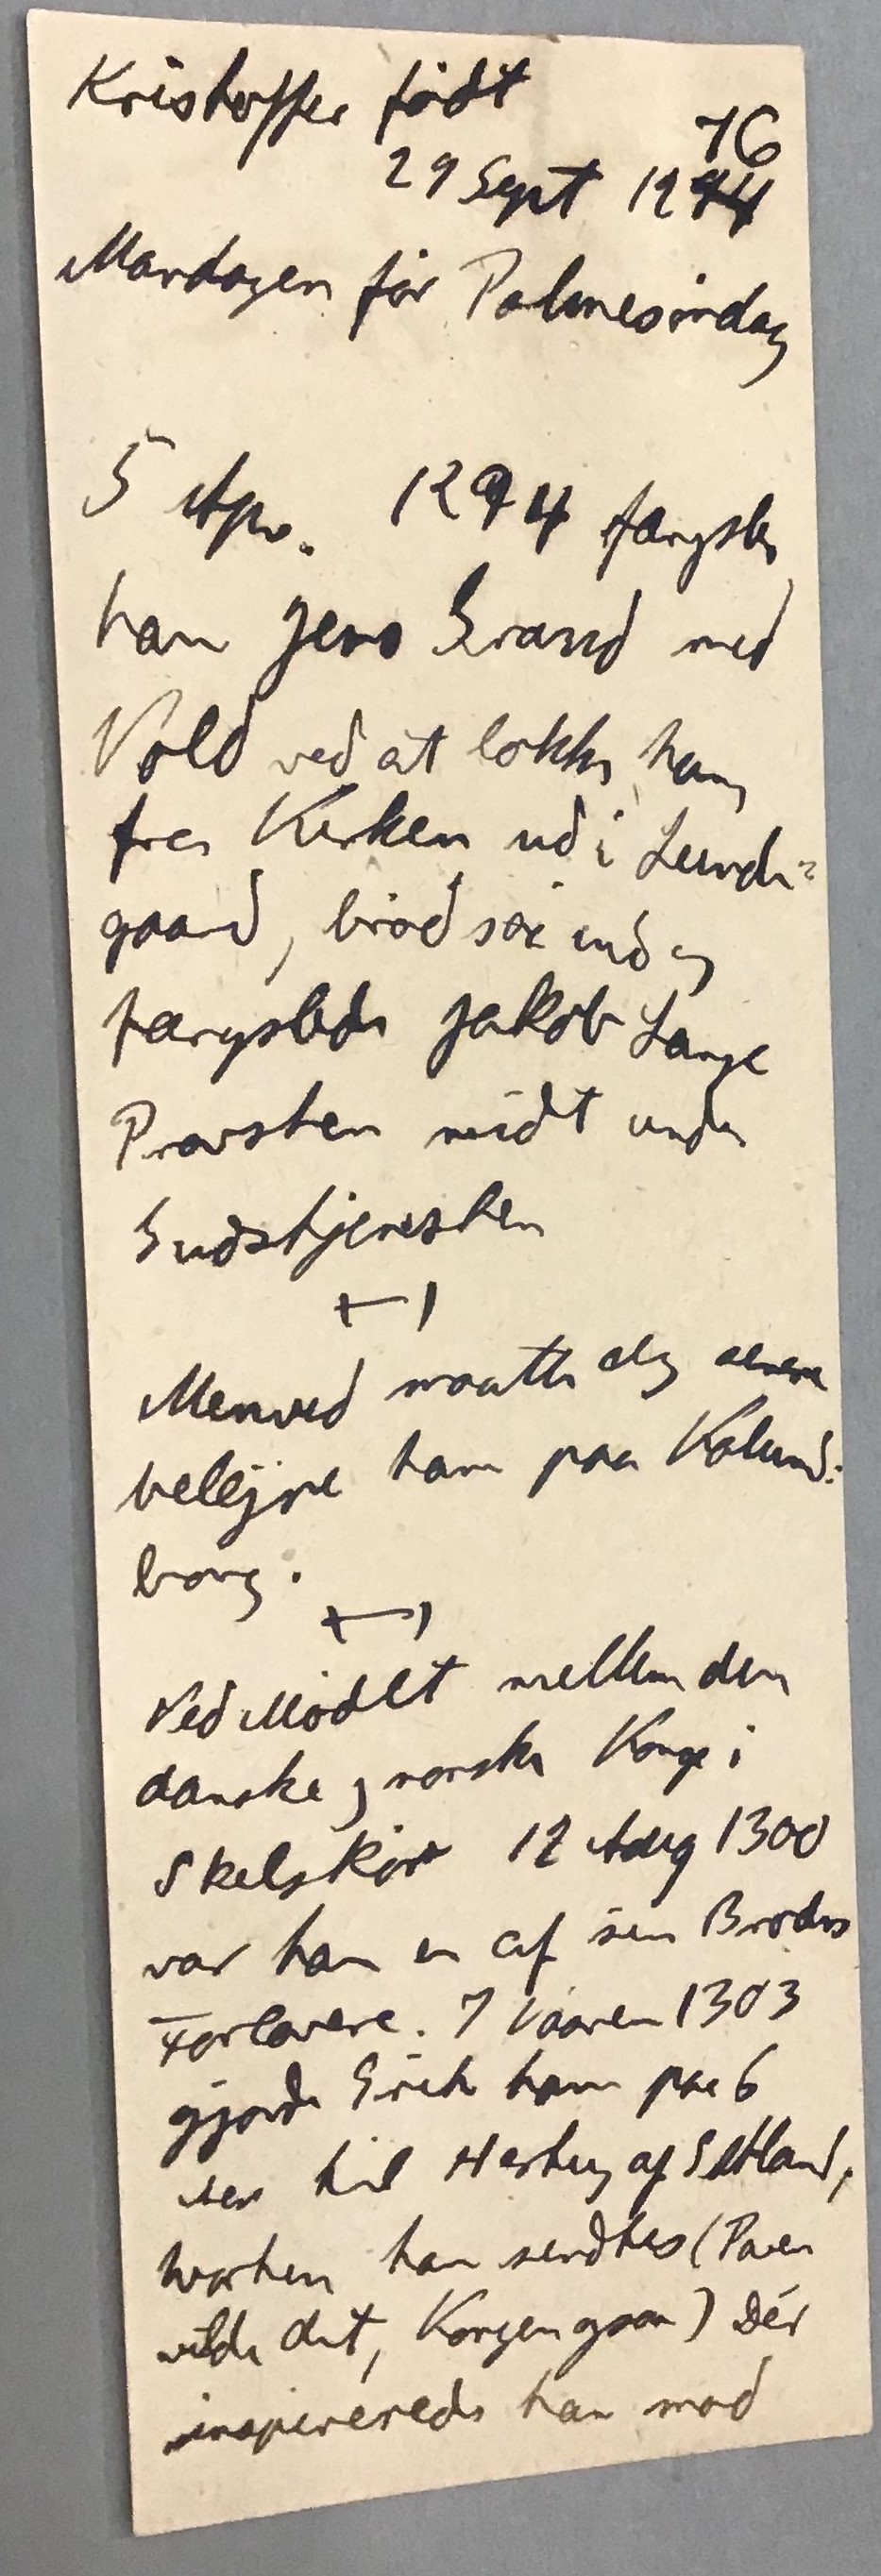 Kristoffer født
76
29 Sept 1294
Mandagen før Palmesøndag
5 Apr. 1294 fængsler
han Jens Grand med
Vold ved at lokke ham
fra Kirken ud i Lunde=
gaard, brød saa ind og
fængslede Jakob Lange
Provsten midt under
Gudstjenesten
Menved maatte dog
belejre ham paa Kalund=
borg.
Ved Mødet mellem den
danske og norske Konge i
Skelskør 12 Aug 1300
var han en af sin Broders
Forlovere. I Vaaren 1303
gjorde Erik ham paa 6
Aar til Hertug af Estland,
hvorhen han sendtes (Paven
vilde det, Kongen gøn) Dér
inspireredes han mod